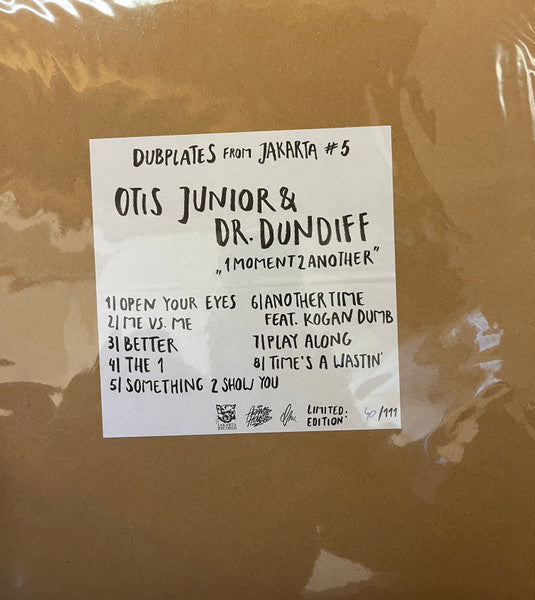 DUBPLATES FROM JAKARTA #5
OTIS JUNIOR &
DR. DUNDIFF
„1MOMENT2ANOTHER"
1| OPEN YOUR EYES
2| ME VS. ME
3| BETTER
4| THE 1
5| SOMETHING 2 SHOW YOU
6| ANOTHER TIME
FEAT. KOGAN DUMB
7| PLAY ALONG
8| TIME'S A WASTIN'
JAKARTA
RECORDS
LIMITED:
EDITION: 40/111